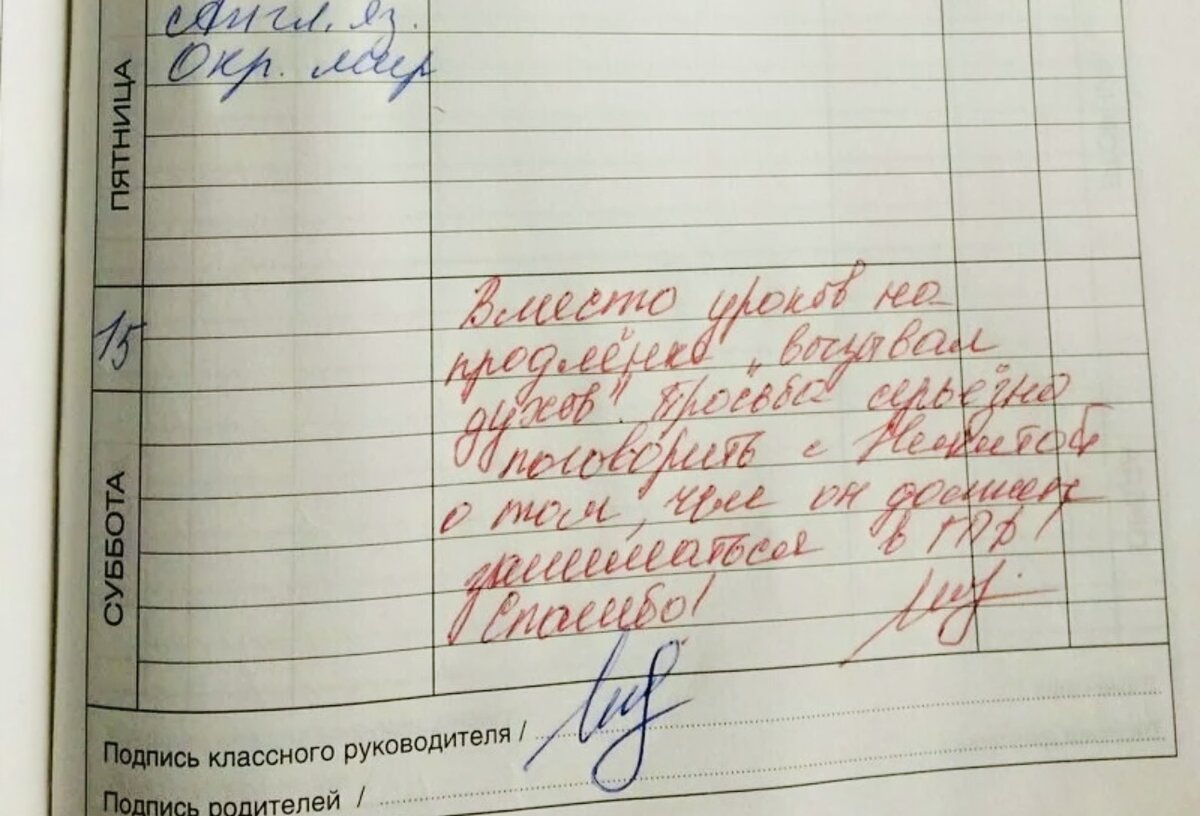 Англ. яз.
Окр. мир
ПЯТНИЦА
15
СУББОТА
Вместо уроков на
продлёнке „вызывал
духов". Просьба серьёзно
поговорить с Никитой
о том, чем он должен
заниматься в ГПД!
Спасибо!
Подпись классного руководителя /
Подпись родителей /